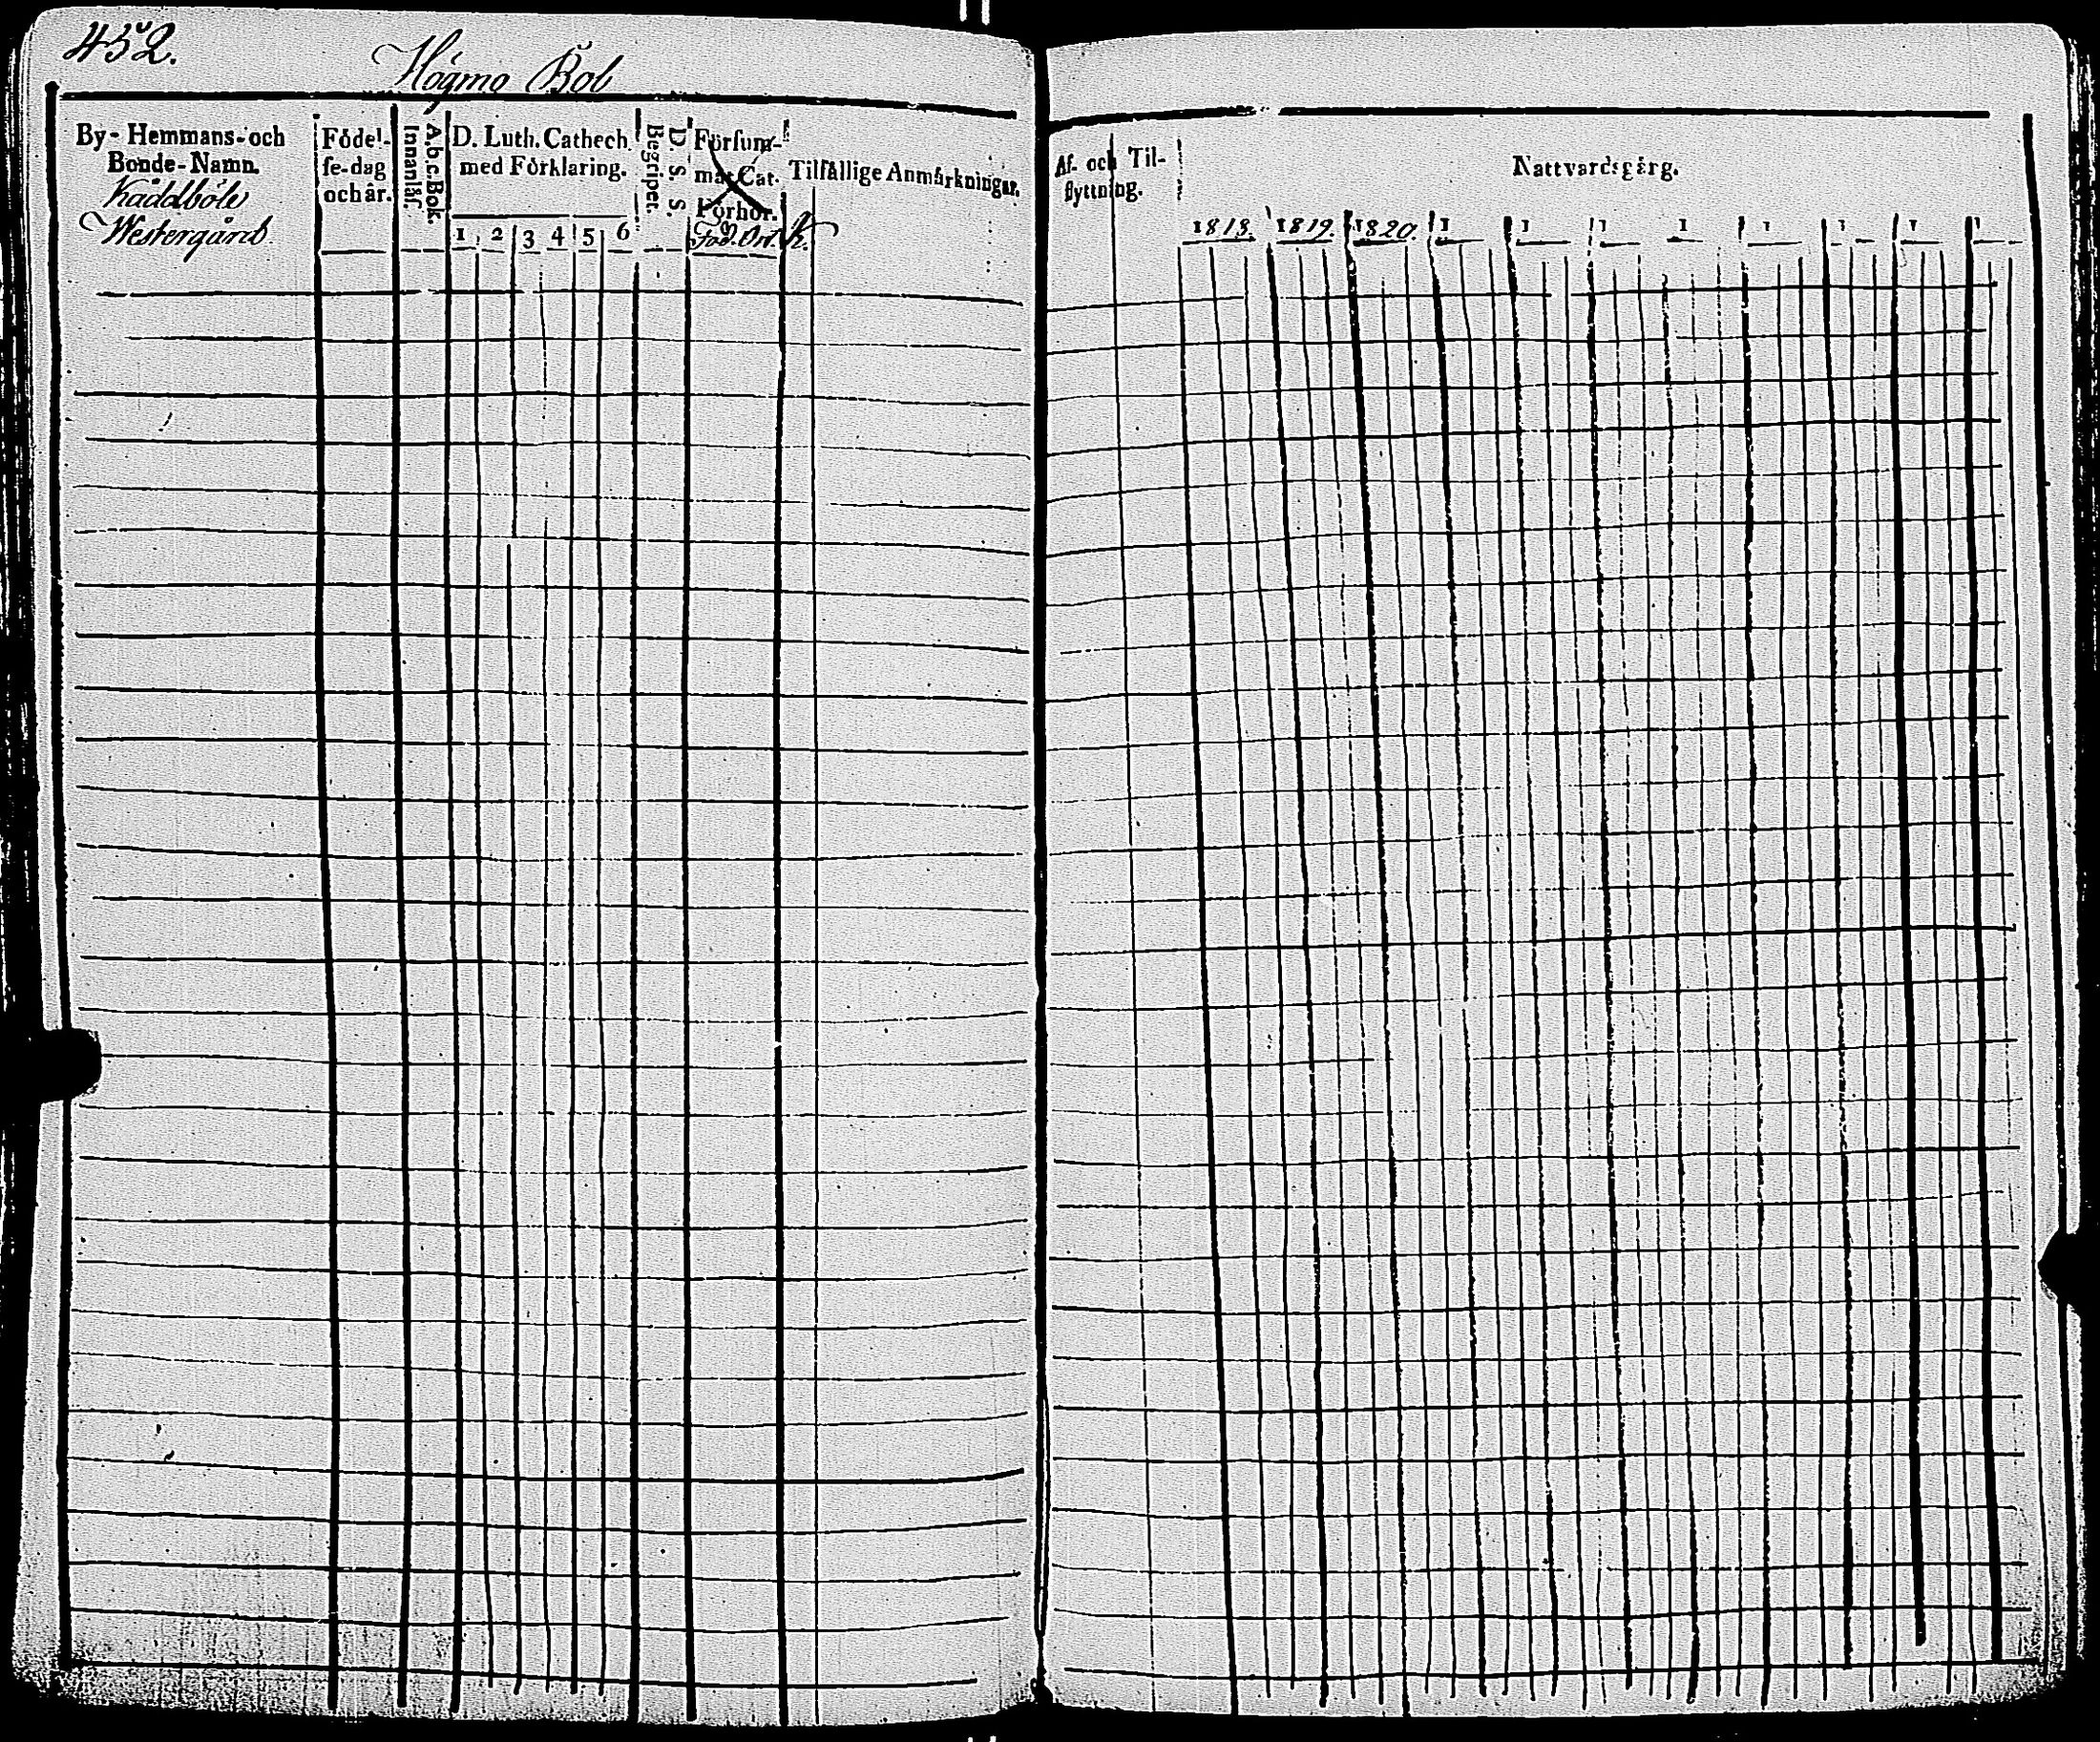 452.
Högmo Bol
By- Hemmans- och
Bonde-Namn.
Käddböle
Westergård.
Födel-
se-dag
och år.
A.b.c. Bok.
Innanläs.
D. Luth. Cathech.
med Förklaring.
1 2 3 4 5 6
D. S. S.
Begriper.
Försum-
mat Cat.
Förhör.
Föd. Ort.
Tilfällige Anmärkningar.
Af- och Til-
flyttning.
Nattvardsgång.
1818. 1819. 1820. 1 1 1 1 1 1 1 1